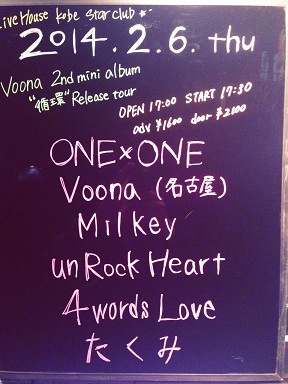 Live House kobe star club★
2014.2.6. thu
Voona 2nd mini album
"循環" Release tour
OPEN 17:00 START 17:30
adv ¥1600 door ¥2100
ONE×ONE
Voona (名古屋)
Milkey
unRock Heart
4 words Love
たくみ